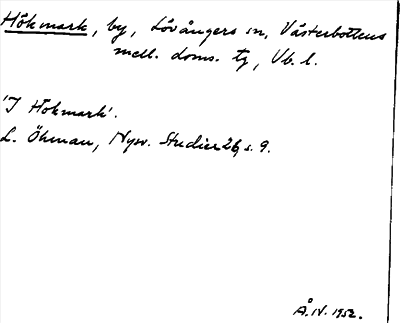 Hökmark, by, Lövångers sn, Västerbottens
mell. doms. tg, Vb. l.
'I Hökmark'.
L. Öhman, Nysv. Studier 26, s. 9.
Å. IV. 1952.